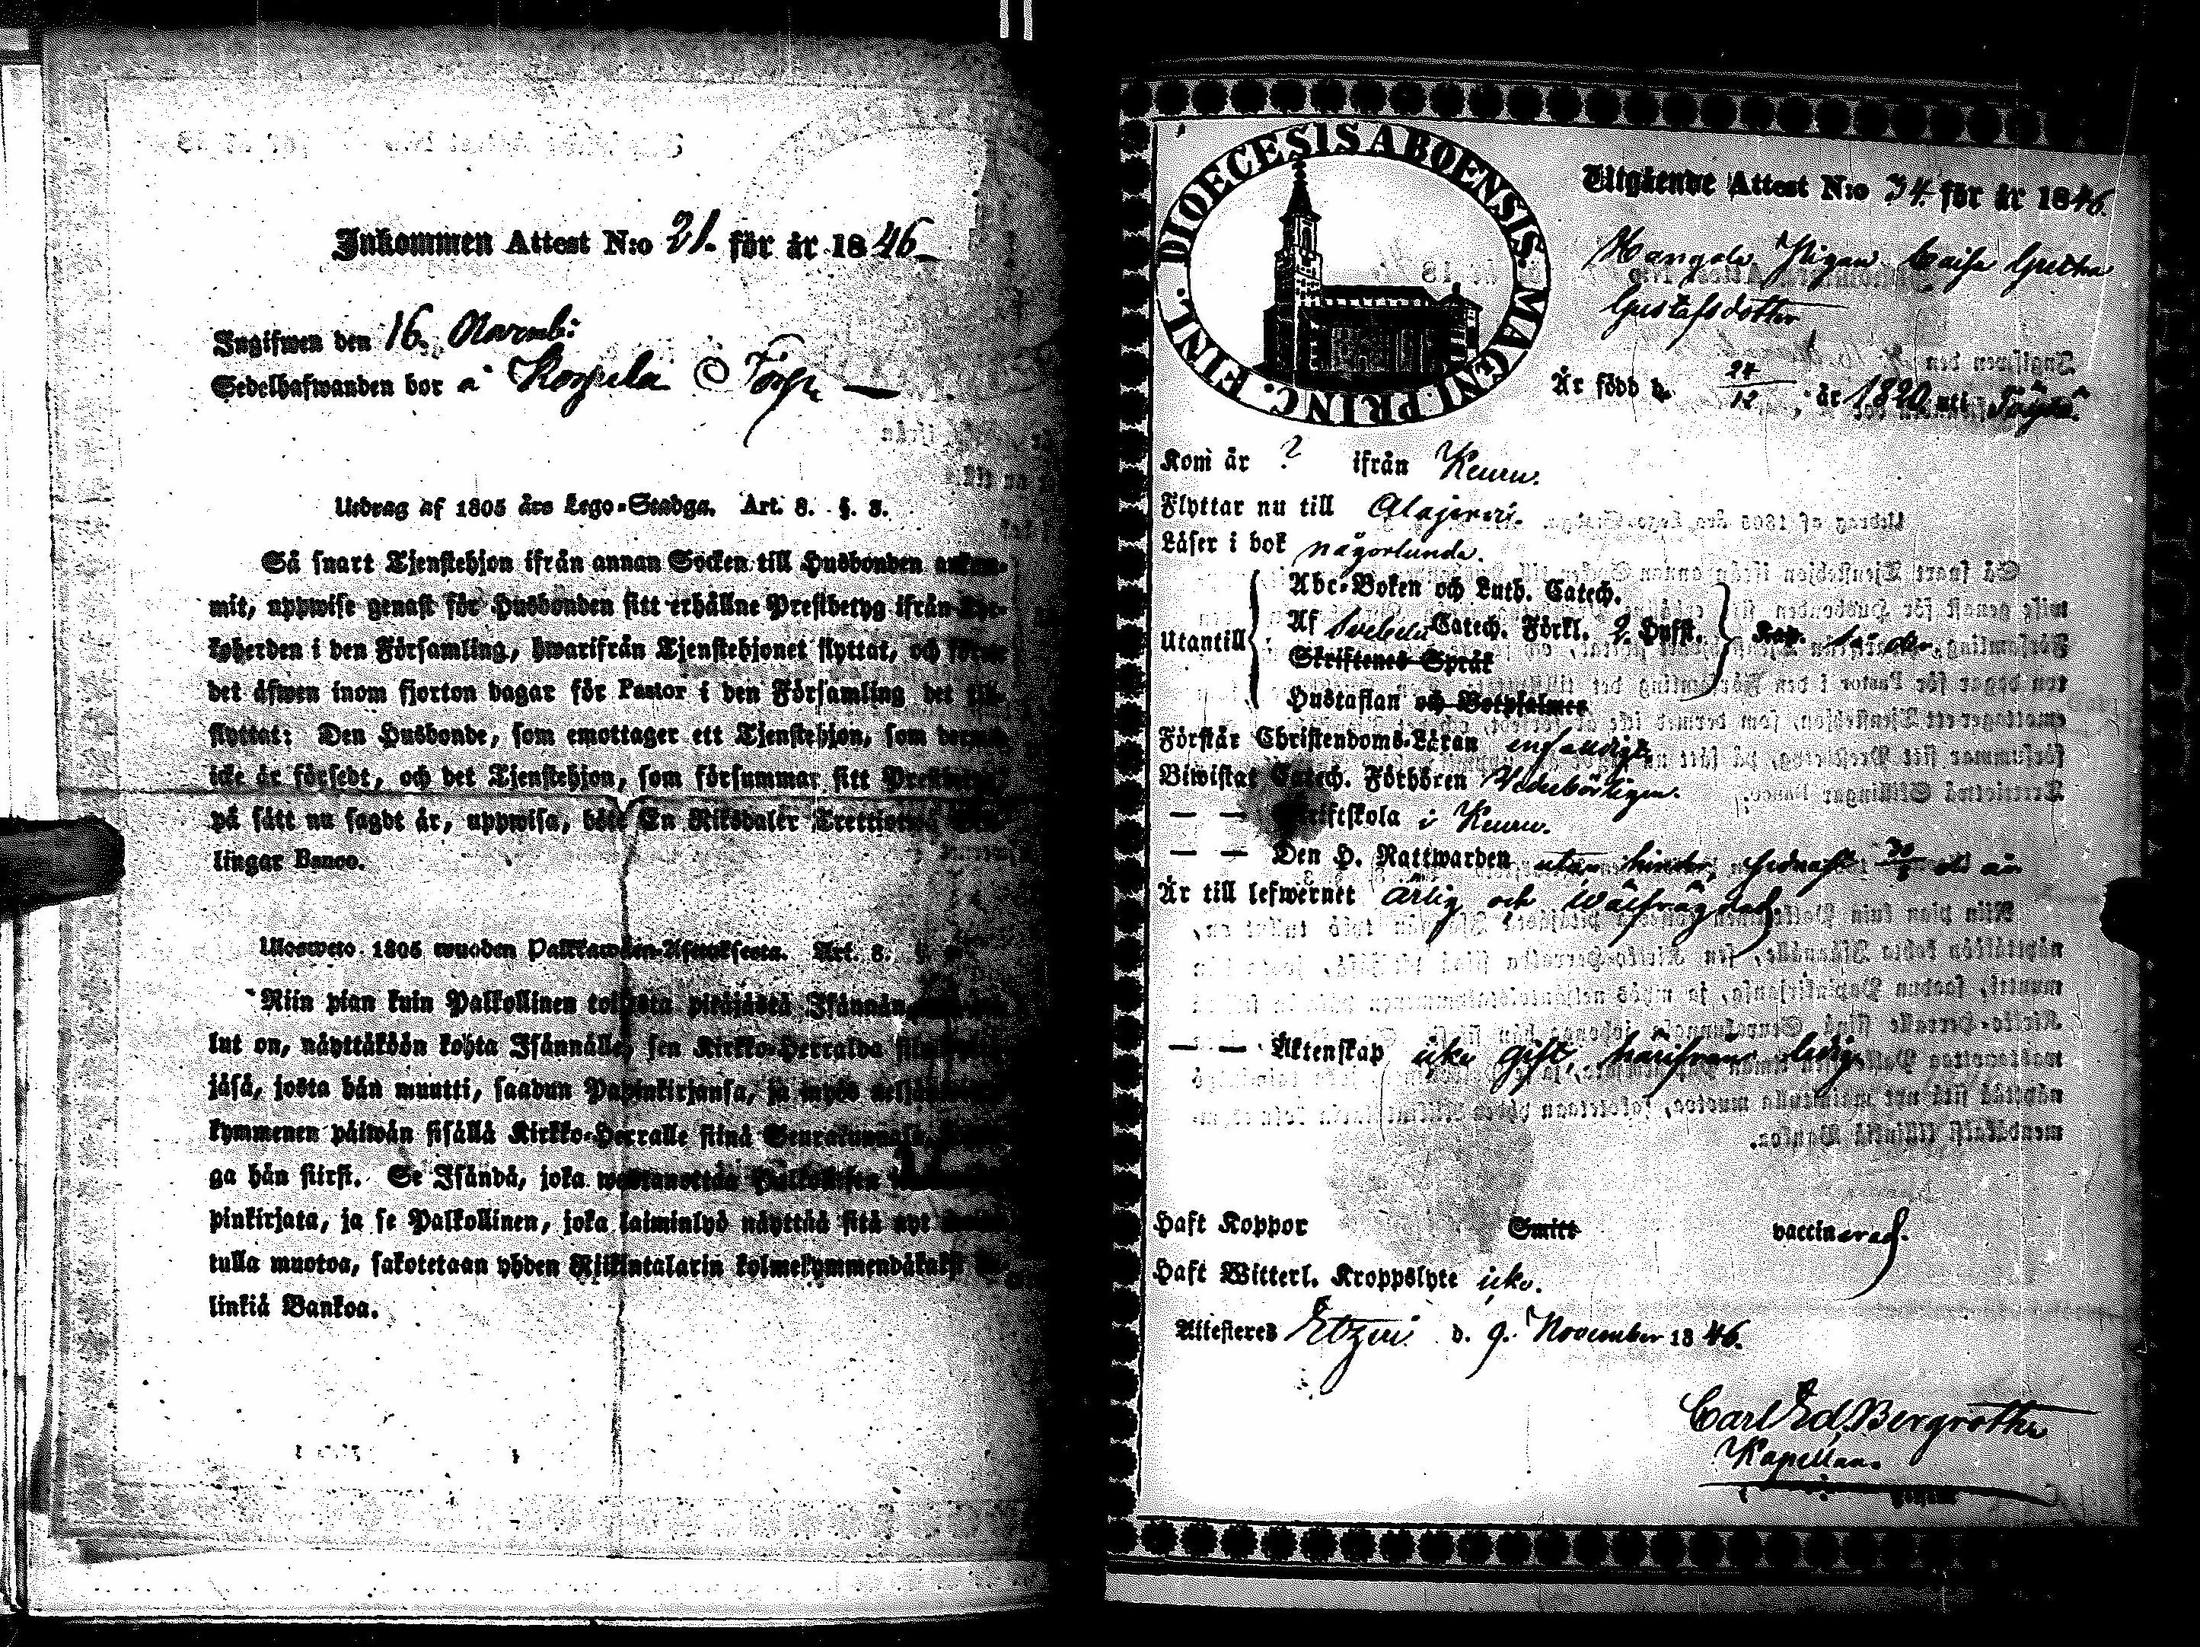 Inkommen Attest N:o 21. för år 1846
Ingifwen den 16. Novemb:
Sedelhafwanden bor å Korpela Torp
Utdrag af 1805 års Lego-Stadga. Art. 8. §. 3.
Så snart Tjenstehjon ifrån annan Socken till Husbonden ankom-
mit, uppwise genast för Husbonden sitt erhållne Prestbetyg ifrån Kyr-
koherden i den Församling, hwarifrån Tjenstehjonet flyttat, och
det äfwen inom fjorton dagar för Pastor i den Församling det till-
flyttat: Den Husbonde, som emottager ett Tjenstehjon, som dermed
icke är försedt, och det Tjenstehjon, som försummar sitt Prestbetyg,
på sätt nu sagdt är, uppwisa, böte En Riksdaler Trettiotwå Skil-
lingar Banco.
Ulosweto 1805 wuoden Palkkawäen-Asetuksesta. Art. 8. §.
Niin pian kuin Palkollinen toisesta pitäjästä Isännän
lut on, näyttäköön kohta Isännälle, sen Kirkko-Herralda
jäsä, josta hän muutti, saadun Papinkirjansa, ja myös neljän
kymmenen päiwän sisällä Kirkko-Herralle siinä Seurakunnasa,
ga hän siirsi. Se Isändä, joka wastanottaa Palkollisen
pinkirjata, ja se Palkollinen, joka laiminlyö näyttää sitä nyt
tulla muotoa, sakotetaan yhden Riikintalarin kolmekymmendäkaksi
linkiä Bankoa.
DIOECESIS ABOENSIS. MAGNI. PRINC. FINL.
Utgående Attest N:o 34. för år 1846.
Pigan Caisa Gretha
Gustafsdotter
Är född d. 24/12, år 1820 uti Töysä.
Kom år ? ifrån Keuru.
Flyttar nu till Alajerwi.
Läser i bok någorlunda.
Utantill
Abc-Boken och Luth. Catech.
Af Svebelii Catech. Förkl. 2. Hufst.
Skriftenes Språk
Hustaflan och Botpsalmer
Kap.
Förstår Christendoms-Läran enfaldigt.
Biwistat Catech. Förhören Wederbörligen.
— — Skriftskola i Keuru.
— — Den H. Nattwarden utan hinder, sednast
Är till lefwernet ärlig och wälfrägdad.
— — Äktenskap icke gift, härifrån ledig.
Haft Koppor Smitt vaccinerad.
Haft Witterl. Kroppslyte icke.
Attesteres Etzeri d. 9. November 1846.
Carl Ed. Bergroth
Kapellan.